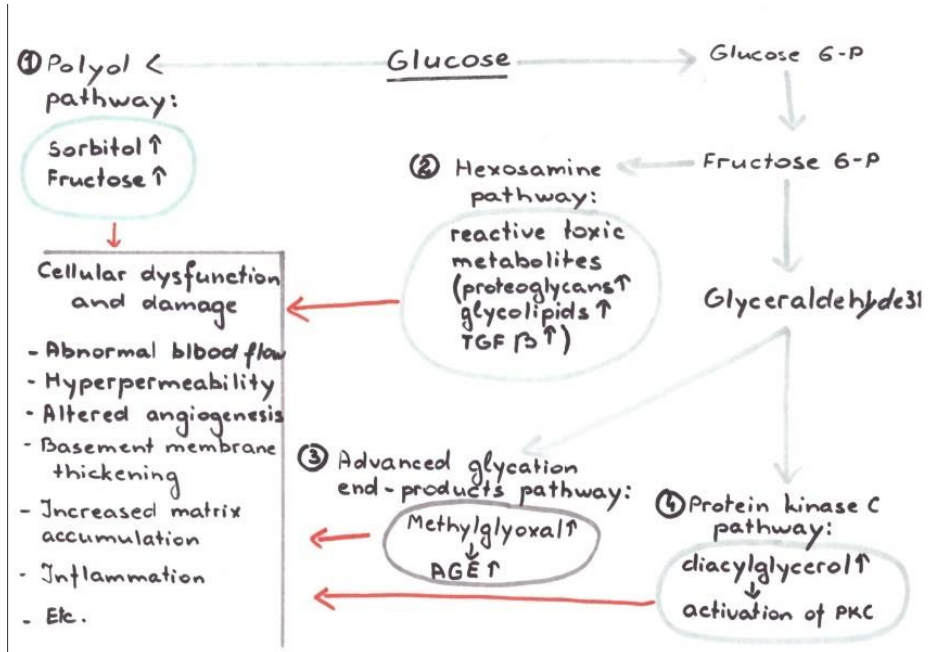 ① Polyol
pathway:
Sorbitol ↑
Fructose ↑
Glucose
Glucose 6-P
Fructose 6-P
Glyceraldehyde31
② Hexosamine
pathway:
reactive toxic
metabolites
(proteoglycans ↑
glycolipids ↑
TGF β ↑)
Cellular dysfunction
and damage
- Abnormal blbod flow
- Hyperpermeability
- Altered angiogenesis
- Basement membrane
thickening
- Increased matrix
accumulation
- Inflammation
- Etc.
③ Advanced glycation
end-products pathway:
Methylglyoxal ↑
↓
AGE ↑
④ Protein kinase C
pathway:
diacylglycerol ↑
↓
activation of PKC